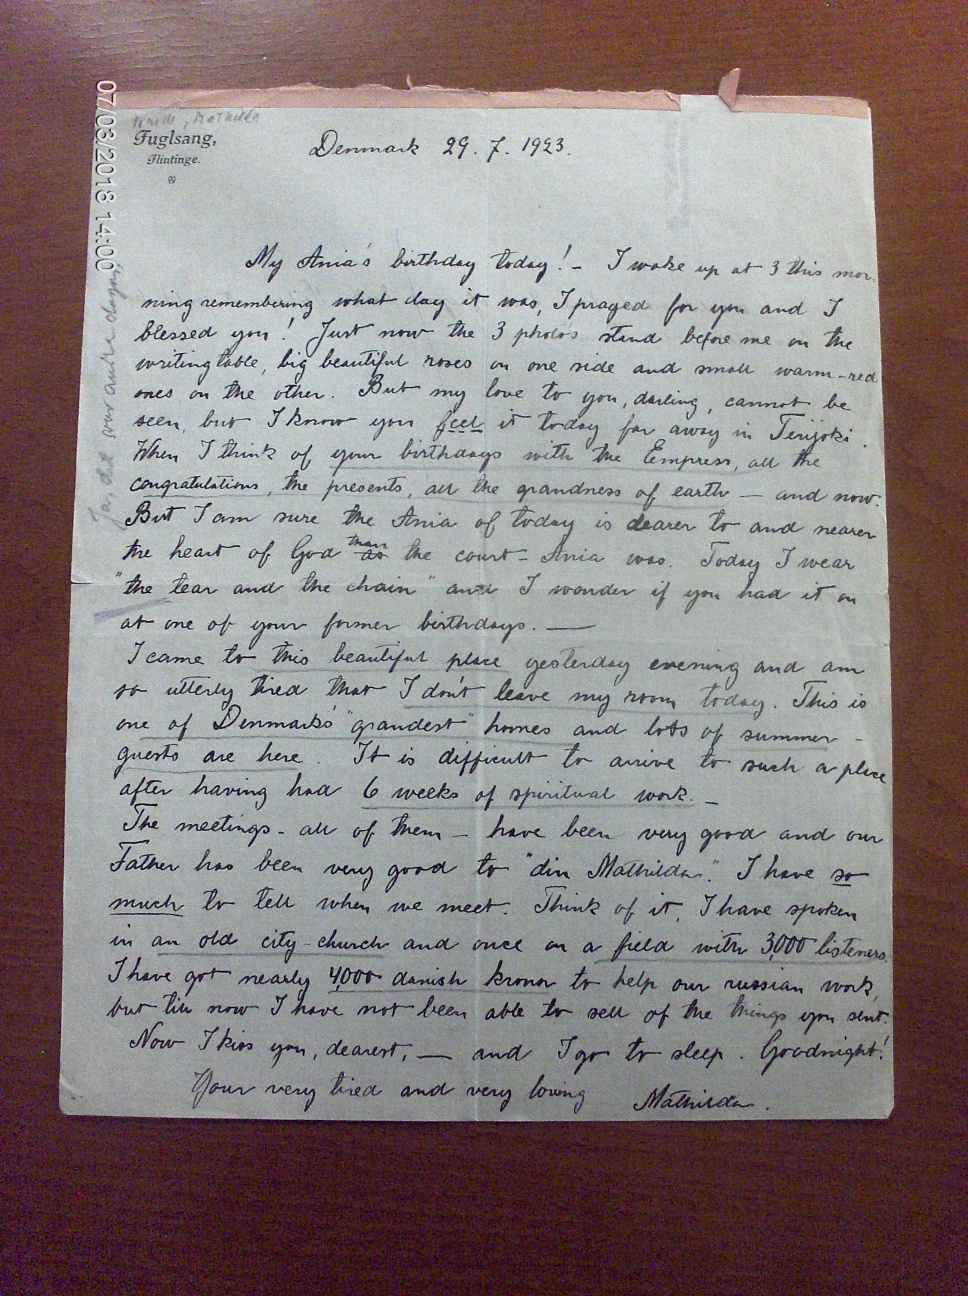 07/03/2018 14:00
Wrede, Mathilda
Fuglsang,
Flintinge.
Denmark 29. 7. 1923.
My Ania's birthday today! – I woke up at 3 this mor-
ning remembering what day it was, I prayed for you and I
blessed you! Just now the 3 photos stand before me on the
writingtable, big beautiful roses on one side and small warm-red
ones on the other. But my love to you, darling, cannot be
seen, but I know you feel it today far away in Terijoki.
When I think of your birthdays with the Empress, all the
congratulations, the presents, all the grandness of earth — and now.
But I am sure the Ania of today is dearer to and nearer
the heart of God than as the court-Ania was. Today I wear
"the tear and the chain" and I wonder if you had it on
at one of your former birthdays. —
I came to this beautiful place yesterday evening and am
so utterly tired that I don't leave my room today. This is
one of Denmark's "grandest" homes and lots of summer-
guests are here. It is difficult to arrive to such a place
after having had 6 weeks of spiritual work. –
The meetings – all of them – have been very good and our
Father has been very good to "din Mathilda". I have so
much to tell when we meet. Think of it, I have spoken
in an old city-church and once on a field with 3,000 listeners.
I have got nearly 4,000 danish kronor to help our russian work,
but till now I have not been able to sell of the things you sent.
Now I kiss you, dearest, — and I go to sleep. Goodnight!
Your very tired and very loving Mathilda.
Ja, det var andra dagar,